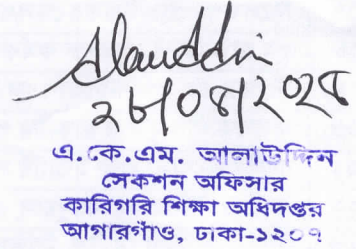 Alauddin
২৮/০৪/২০২৪
এ.কে.এম. আলাউদ্দিন
সেকশন অফিসার
কারিগরি শিক্ষা অধিদপ্তর
আগারগাঁও, ঢাকা-১২০৭